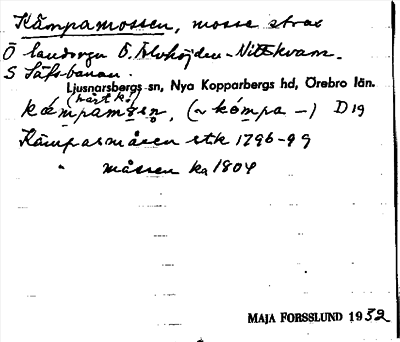 Kämpamossen, mosse strax
Ö landsvgn Ö. Älvhöjden-Nittkvarn.
S Säfsbanan.
Ljusnarsbergs sn, Nya Kopparbergs hd, Örebro län.
(hårt k!)
kæmpamɜsn, (~ kómpa -) D19
Kämpasmåsen stk 1796-99
" måssen ka 1804
MAJA FORSSLUND 1932